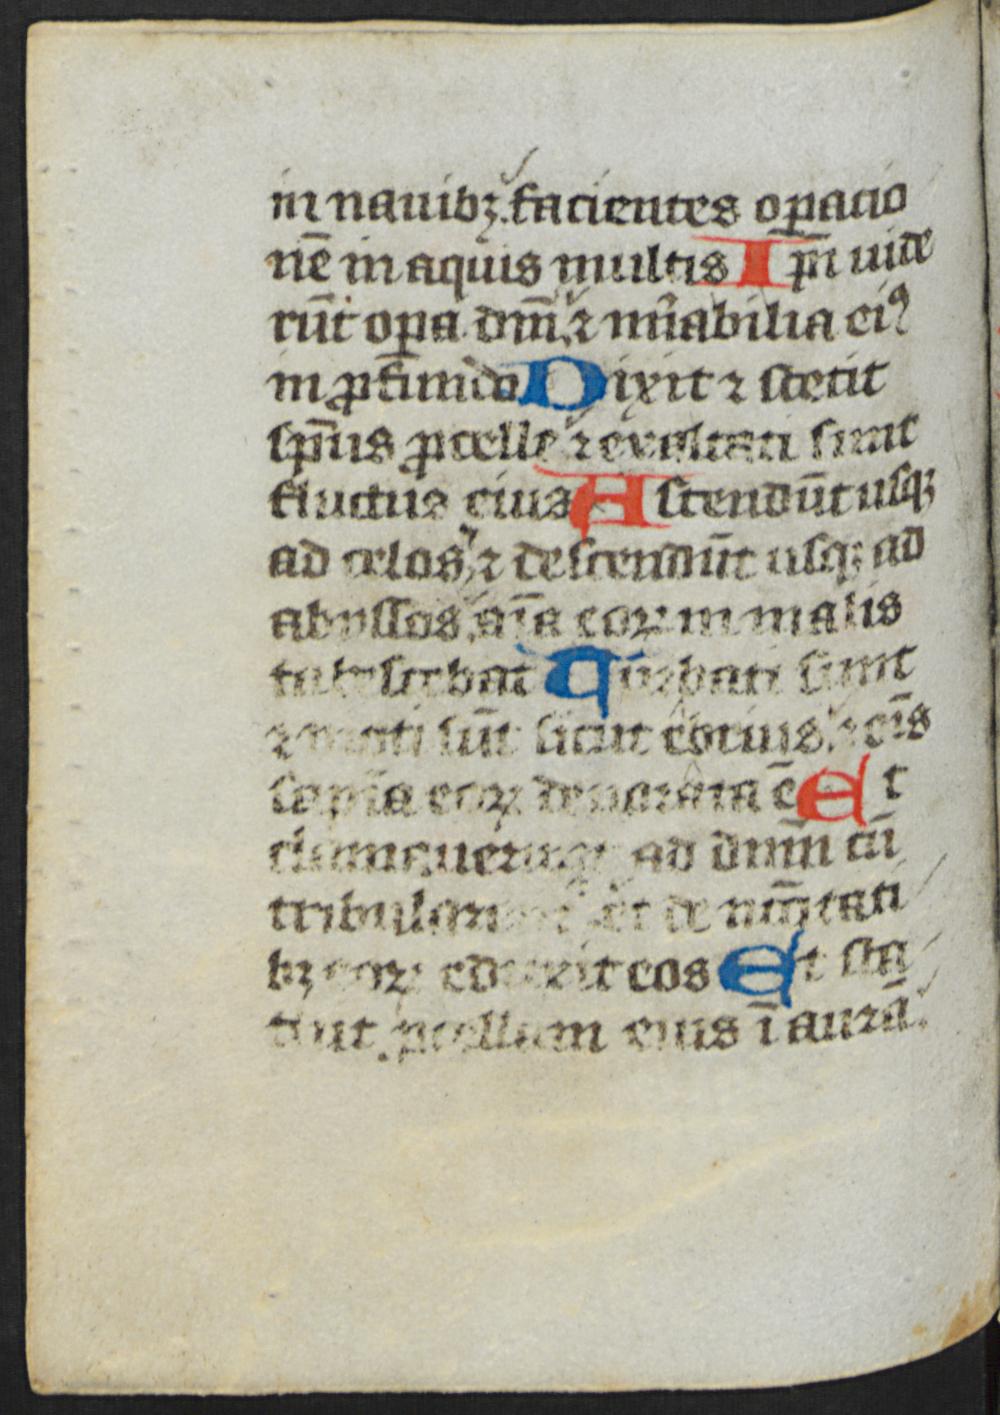 in nauibꝫ. facientes oꝑacio
nē in aquis multis Ip̄i uide
rūt oꝑa dn̄i ⁊ mr̄abilia eiꝰ
in ꝓfundo Dixit ⁊ stetit
sp̄us ꝓcelle ⁊ exaltati sunt
fluctus eius Ascendūt usqꝫ
ad celos ⁊ descendūt usqꝫ ad
abyssos aīa eoꝝ in malis
tabescebat Turbati sunt
⁊ moti sūt sicut ebrius ⁊ oīs
sapīa eoꝝ deuorata ē Et
clamauerunt ad dnm̄ cū
tribularent et de necc̄itati
bꝫ eoꝝ eduxit eos Et sta
tuit ꝓcellam eius ī aurā